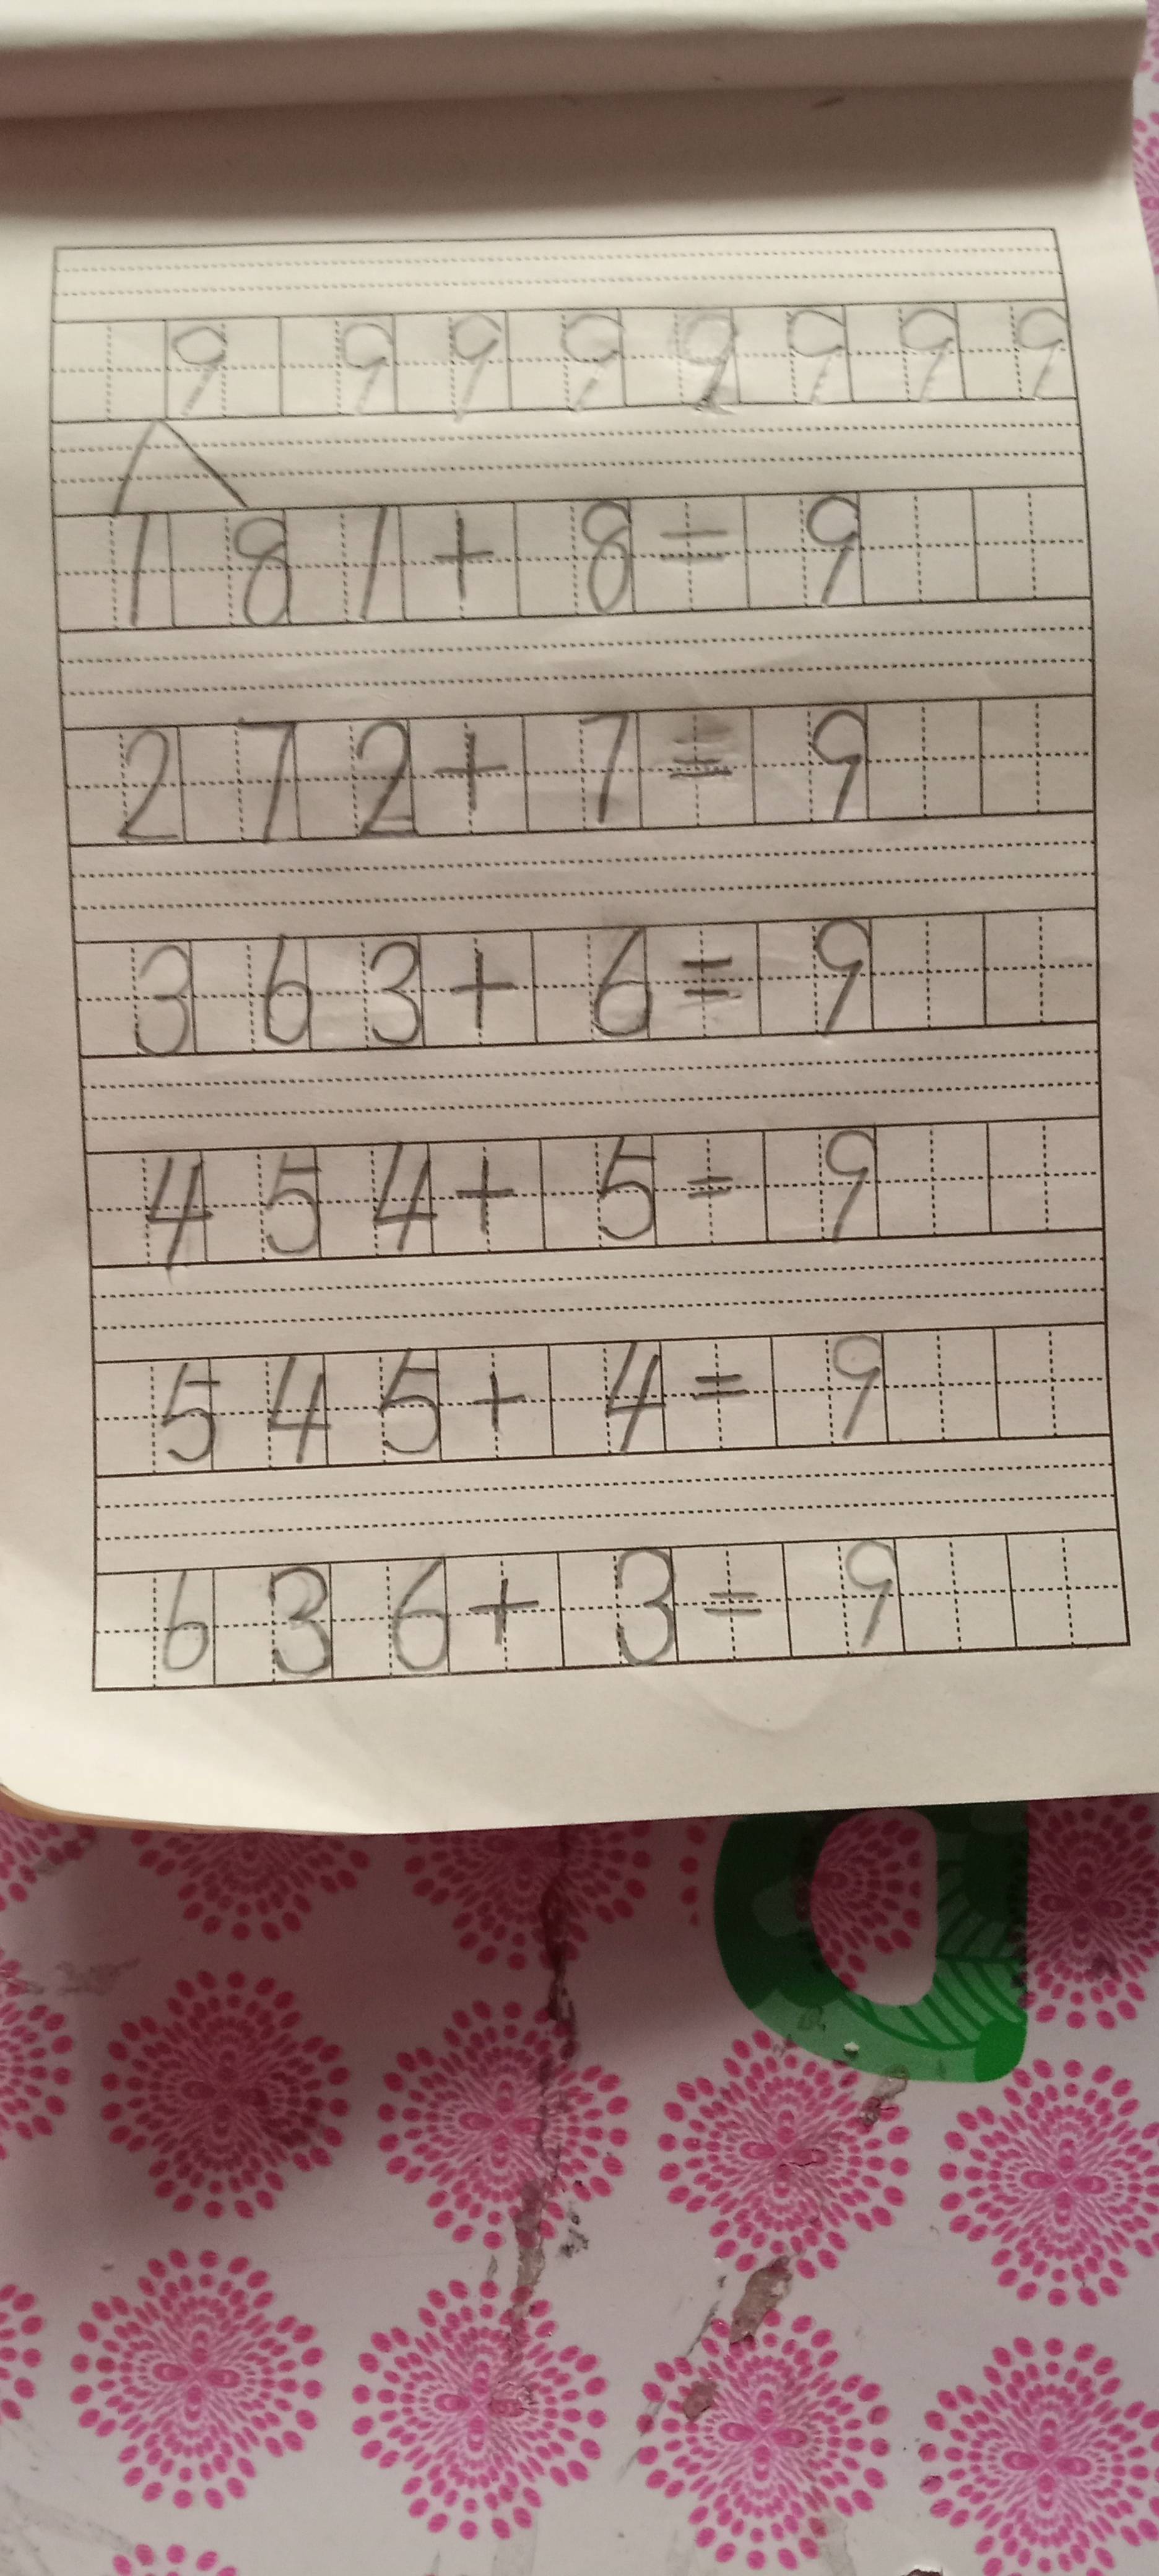 9 9 9 9 9 9 9 9
1 8 1 + 8 = 9
2 7 2 + 7 = 9
3 6 3 + 6 = 9
4 5 4 + 5 = 9
5 4 5 + 4 = 9
6 3 6 + 3 = 9